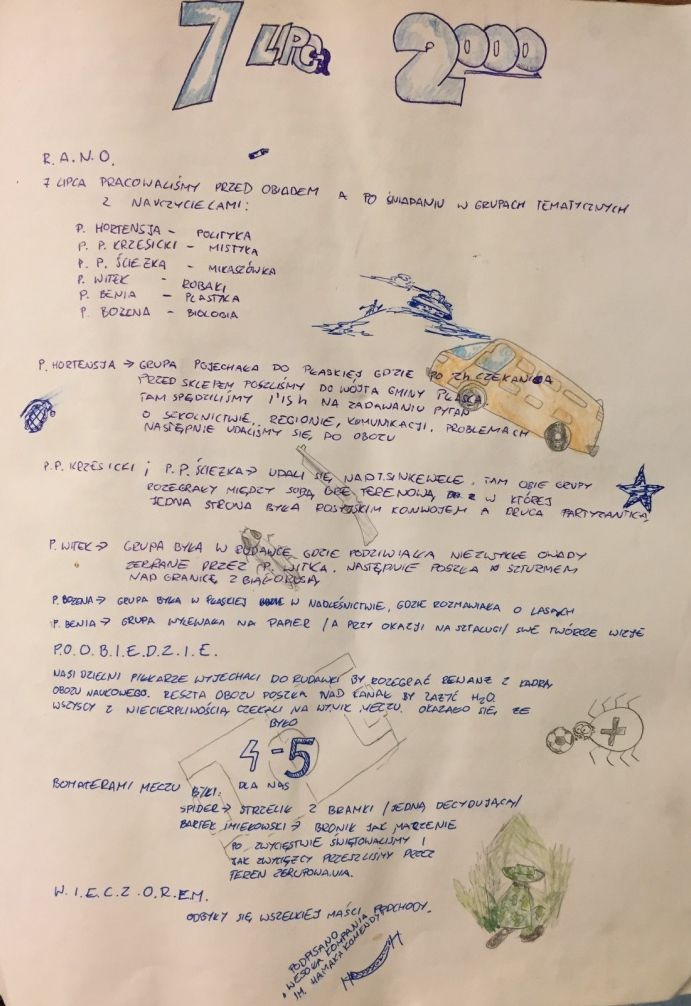 7 LIPCA 2000
R.A.N.O.
7 LIPCA PRACOWALIŚMY PRZED OBIADEM A PO ŚNIADANIU W GRUPACH TEMATYCZNYCH
Z NAUCZYCIELAMI:
P. HORTENSJA – POLITYKA
P. P. KRZESICKI – MISTYKA
P. P. ŚCIEZKA – MIKASZÓWKA
P. WITEK – ROBAKI
P. BENIA – PLASTYKA
P. BOZENA – BIOLOGIA
P. HORTENSJA → GRUPA POJECHAŁA DO PŁASKIEJ GDZIE PO 2h CZEKANIA
PRZED SKLEPEM POSZLIŚMY DO WÓJTA GMINY PŁASKA
TAM SPĘDZILIŚMY 1h15h NA ZADAWANIU PYTAŃ
O SZKOLNICTWIE, REGIONIE, KOMUNIKACJI, PROBLEMACH
NASTĘPNIE UDALIŚMY SIĘ DO OBOZU
P.P. KRZESICKI i P.P. ŚCIEZKA → UDALI SIĘ NAD J. SINKEWELE, TAM OBIE GRUPY
ROZEGRAŁY MIĘDZY SOBĄ GRĘ TERENOWĄ, W KTÓREJ
JEDNA STRONA BYŁA ROSYJSKIM KONWOJEM A DRUGA PARTYZANTKĄ
P. WITEK → GRUPA BYŁA W RUDAWCE GDZIE PODZIWIAŁA NIEZWYKŁE OWADY
ZEBRANE PRZEZ P. WITKA. NASTĘPNIE POSZŁA SZTURMEM
NAD GRANICĘ Z BIAŁORUSIĄ
P. BOZENA → GRUPA BYŁA W PŁASKIEJ W NADLEŚNICTWIE, GDZIE ROZMAWIAŁA O LASACH
P. BENIA → GRUPA WYLEWAŁA NA PAPIER /A PRZY OKAZJI NA SZTALUGI/ SWE TWÓRCZE WIZJE
P.O.O.B.I.E.D.Z.I.E.
NASI DZIELNI PIŁKARZE WYJECHALI DO RUDAWKI BY ROZEGRAĆ REWANZ Z KADRĄ
OBOZU NAUKOWEGO. RESZTA OBOZU POSZŁA NAD KANAŁ BY ZAZYĆ H2O.
WSZYSCY Z NIECIERPLIWOŚCIĄ CZEKALI NA WYNIK MECZU. OKAZAŁO SIĘ, ZE
BYŁO
4-5
DLA NAS
BOHATERAMI MECZU BYLI:
SPIDER → STRZELIŁ 2 BRAMKI /JEDNĄ DECYDUJĄCĄ/
BARTEK ŚMIEKOWSKI → BRONIŁ JAK MARZENIE
PO ZWYCIĘSTWIE ŚWIĘTOWALIŚMY I
JAK ZWYCIĘZCY PRZESZLIŚMY PRZEZ
TEREN ZGRUPOWANIA.
W.I.E.C.Z.O.R.E.M.
ODBYŁY SIĘ WSZELKIEJ MAŚCI PODCHODY.
PODPISANO
WESOŁA KOMPANIA
IM. HAMAKA KOMENDY